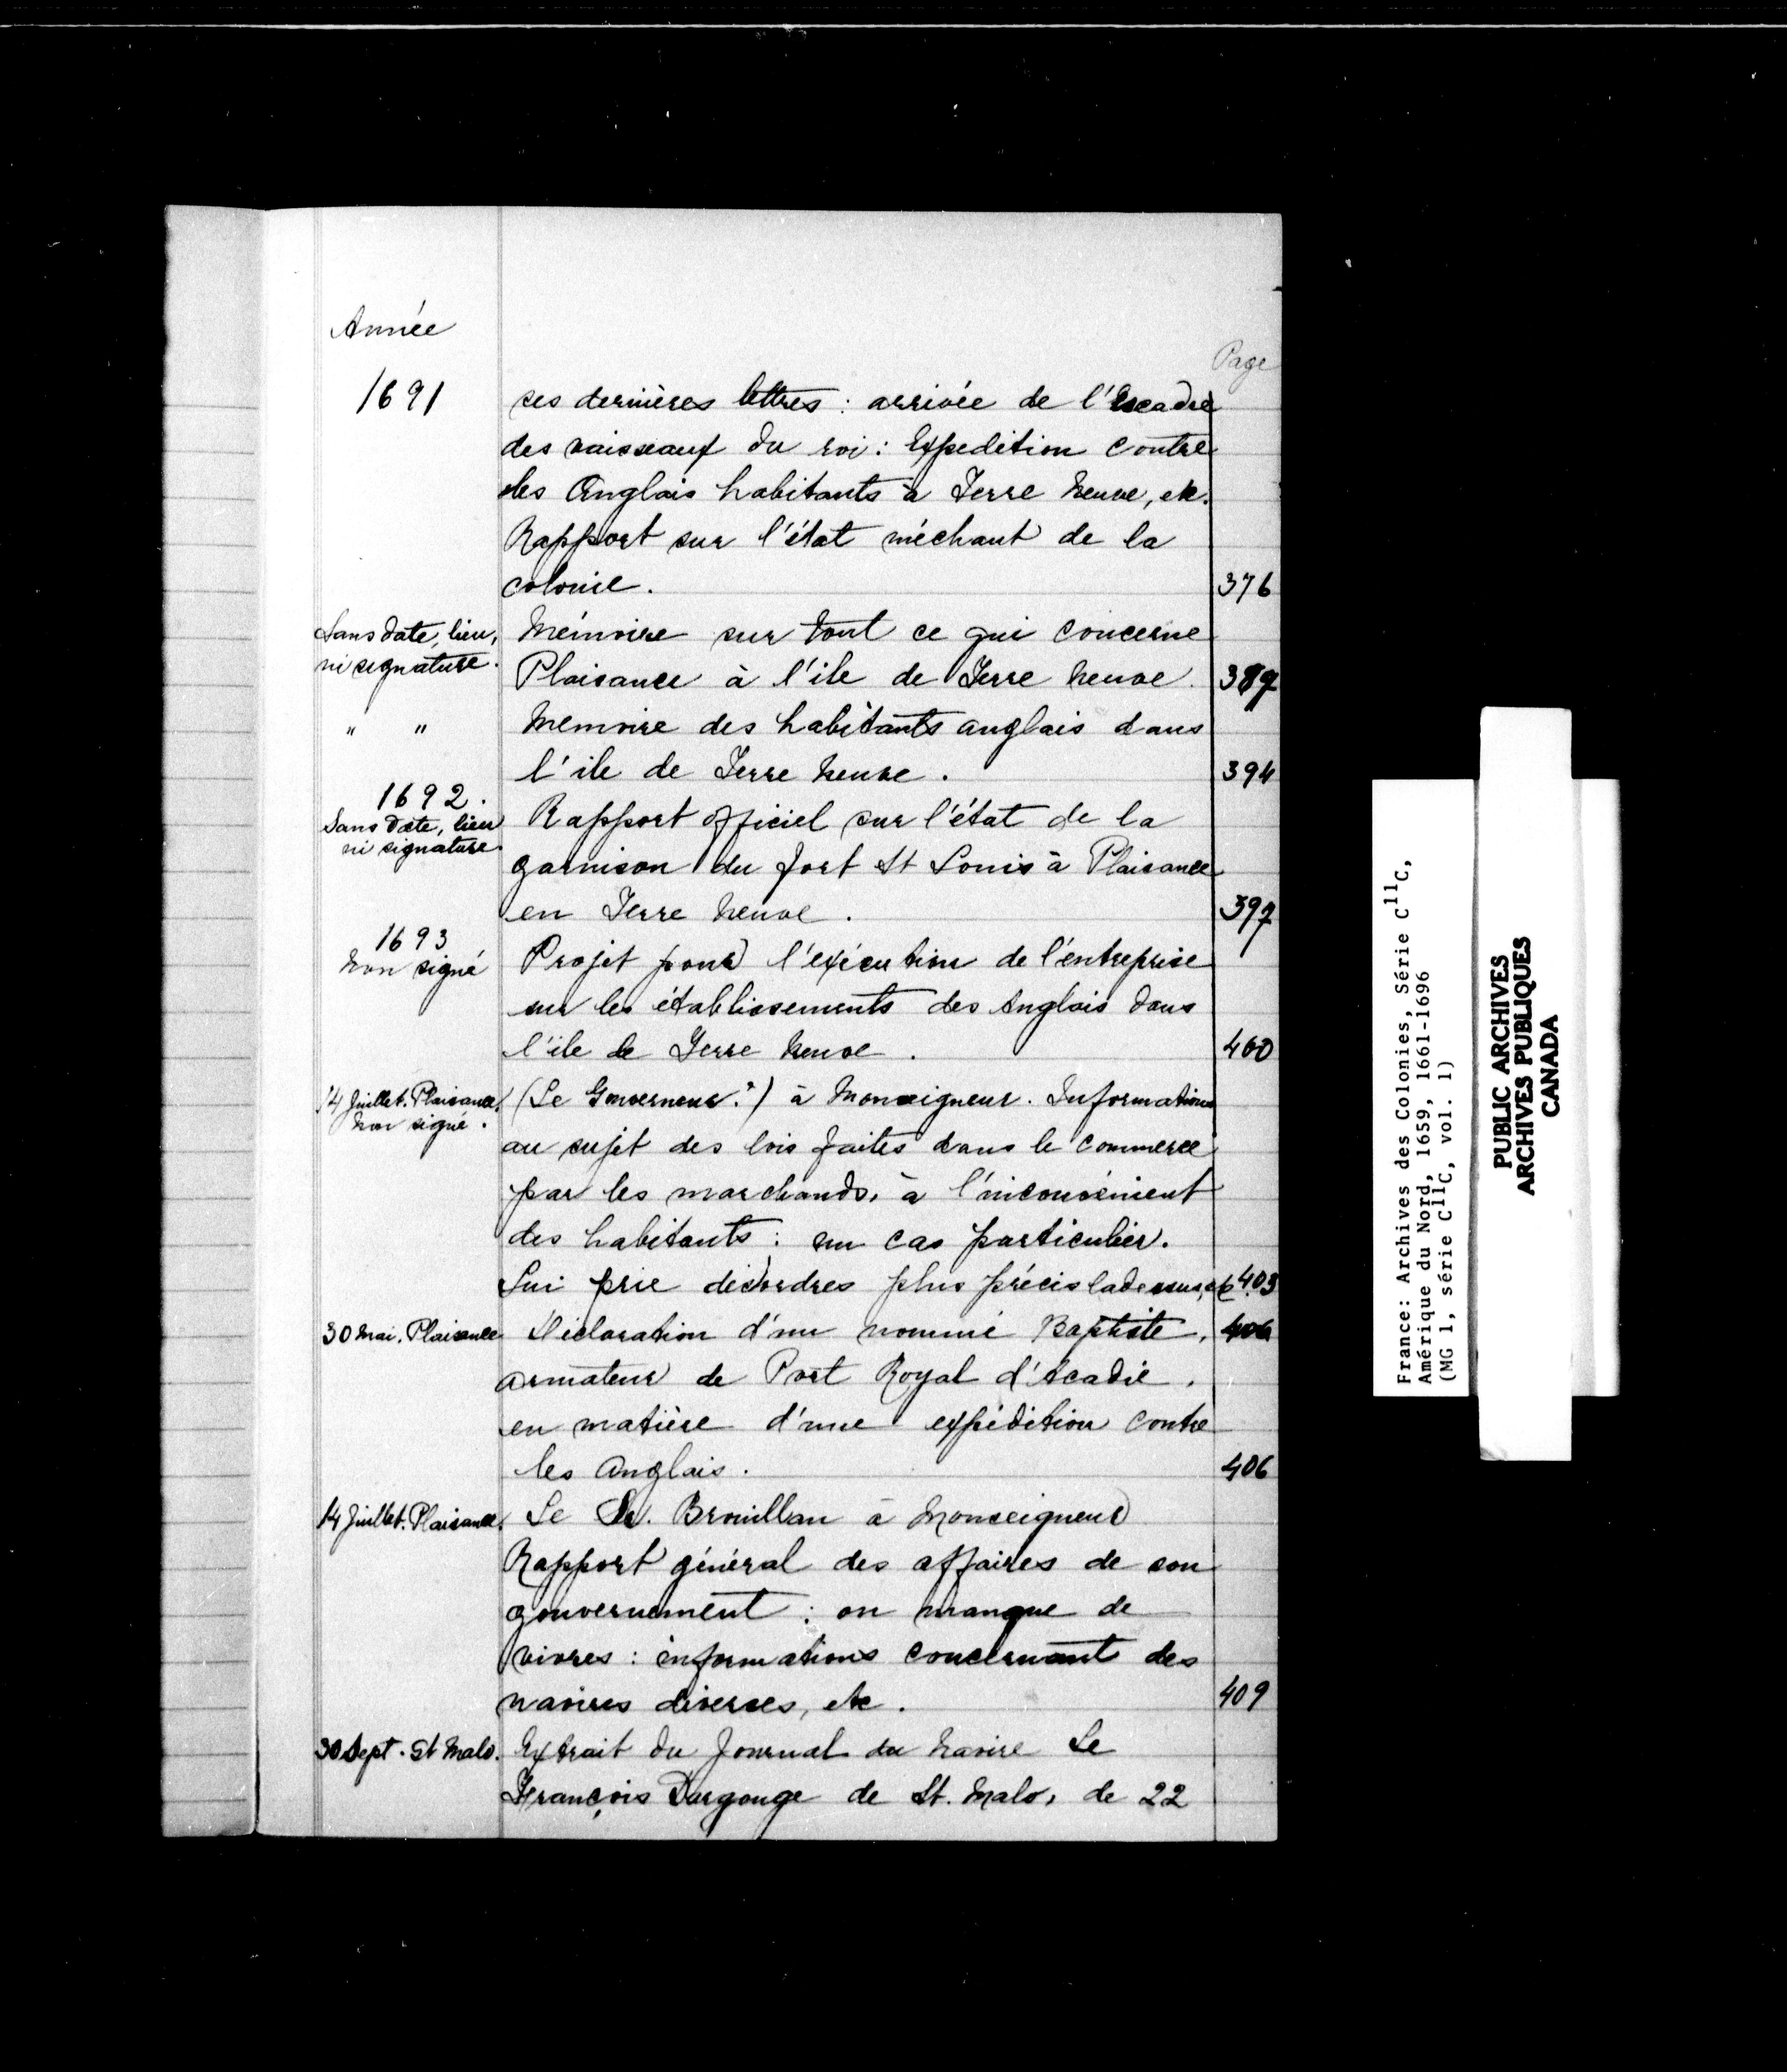 Année
Page
1691 ses dernières lettres : arrivée de l'Escadre
des vaisseaux du roi : Expedition contre
les Anglais habitants à Terre Neuve, etc.
Rapport sur l'état méchant de la
colonie. 376
Sans date, lieu, Mémoire sur tout ce qui concerne
ni signature. Plaisance à l'ile de Terre Neuve. 387
" " Memoire des habitants anglais dans
l'ile de Terre Neuve. 394
1692.
Sans date, lieu Rapport officiel sur l'état de la
ni signature.
garnison du fort St Louis à Plaisance
en Terre Neuve. 397
1693
Non signé Projet pour l'exécution de l'entreprise
sur les établissements des Anglais dans
l'ile de Terre Neuve. 400
14 Juillet. Plaisance. (Le Gouverneur?) à Monseigneur. Informations
Non signé.
au sujet des lois faites dans le commerce
par les marchands, à l'inconvénient
des habitants : un cas particulier.
Lui prie des ordres plus précis ladessus, etc. 403
30 Mai. Plaisance Déclaration d'un nommé Baptiste, 406
armateur de Port Royal d'Acadie,
en matière d'une expédition contre
les Anglais. 406
14 Juillet. Plaisance. Le Sr. Brouillan à Monseigneur
Rapport général des affaires de son
gouvernement : on manque de
vivres : informations concernant des
navires diverses, etc. 409
30 Sept. St Malo. Extrait du Journal du Navire Le
François Dargouge de St. Malo, de 22
France: Archives des Colonies, Série C11C,
Amérique du Nord, 1659, 1661-1696
(MG 1, série C11C, vol. 1)
PUBLIC ARCHIVES
ARCHIVES PUBLIQUES
CANADA